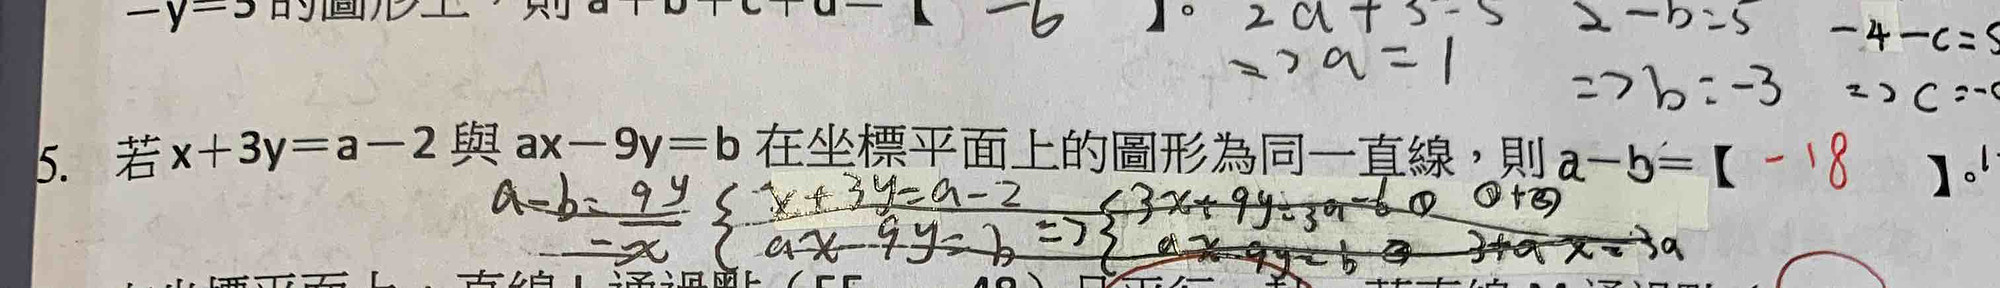 －y＝5 的圖形上，則 a＋b＋c＋d＝【 -6 】。 2a+3=5 2-b=5 -4-c=5
=>a=1
=>b=-3 =>c=-
5. 若 x＋3y＝a－2 與 ax－9y＝b 在坐標平面上的圖形為同一直線，則 a－b＝【 -18 】。
a-b= 9y { x+3y=a-2 => { 3x+9y=3a-6 ① ①+②
=x { ax-9y=b { ax-9y=b ② 3+a x=3a
在坐標平面上，直線 L 通過點（